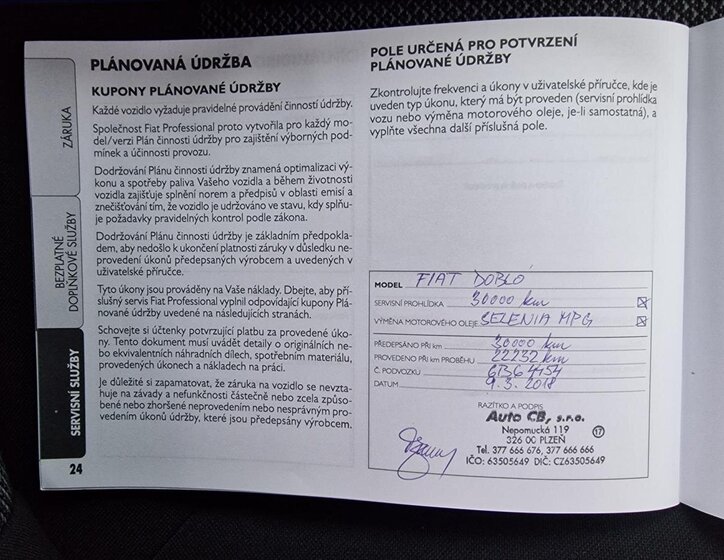 ZÁRUKA
BEZPLATNÉ
DOPLŇKOVÉ SLUŽBY
SERVISNÍ SLUŽBY
PLÁNOVANÁ ÚDRŽBA
KUPONY PLÁNOVANÉ ÚDRŽBY
Každé vozidlo vyžaduje pravidelné provádění činností údržby.
Společnost Fiat Professional proto vytvořila pro každý mo-
del/verzi Plán činností údržby pro zajištění výborných pod-
mínek a účinnosti provozu.
Dodržování Plánu činností údržby znamená optimalizaci vý-
konu a spotřeby paliva Vašeho vozidla a během životnosti
vozidla zajišťuje splnění norem a předpisů v oblasti emisí a
znečišťování tím, že vozidlo je udržováno ve stavu, kdy splňu-
je požadavky pravidelných kontrol podle zákona.
Dodržování Plánu činností údržby je základním předpokla-
dem, aby nedošlo k ukončení platnosti záruky v důsledku ne-
provedení úkonů předepsaných výrobcem a uvedených v
uživatelské příručce.
Tyto úkony jsou prováděny na Vaše náklady. Dbejte, aby pří-
slušný servis Fiat Professional vyplnil odpovídající kupony Plá-
nované údržby uvedené na následujících stranách.
Schovejte si účtenky potvrzující platbu za provedené úko-
ny. Tento dokument musí uvádět detaily o originálních ne-
bo ekvivalentních náhradních dílech, spotřebním materiálu,
provedených úkonech a nákladech na práci.
Je důležité si zapamatovat, že záruka na vozidlo se nevzta-
huje na závady a nefunkčnosti částečně nebo zcela způso-
bené nebo zhoršené neprovedením nebo nesprávným pro-
vedením úkonů údržby, které jsou předepsány výrobcem.
24
POLE URČENÁ PRO POTVRZENÍ
PLÁNOVANÉ ÚDRŽBY
Zkontrolujte frekvenci a úkony v uživatelské příručce, kde je
uveden typ úkonu, který má být proveden (servisní prohlídka
vozu nebo výměna motorového oleje, je-li samostatná), a
vyplňte všechna další příslušná pole.
MODEL FIAT DOBLO
SERVISNÍ PROHLÍDKA 30000 km
VÝMĚNA MOTOROVÉHO OLEJE SELENIA MPG
PŘEDEPSÁNO PŘI km 30000 km
PROVEDENO PŘI KM PROBĚHU 22232 km
Č. PODVOZKU 6B64154
DATUM 9.3.2018
RAZÍTKO A PODPIS
Auto CB, s.r.o.
Nepomucká 119
326 00 PLZEŇ 17
Tel. 377 666 676, 377 666 666
IČO: 63505649 DIČ: CZ63505649